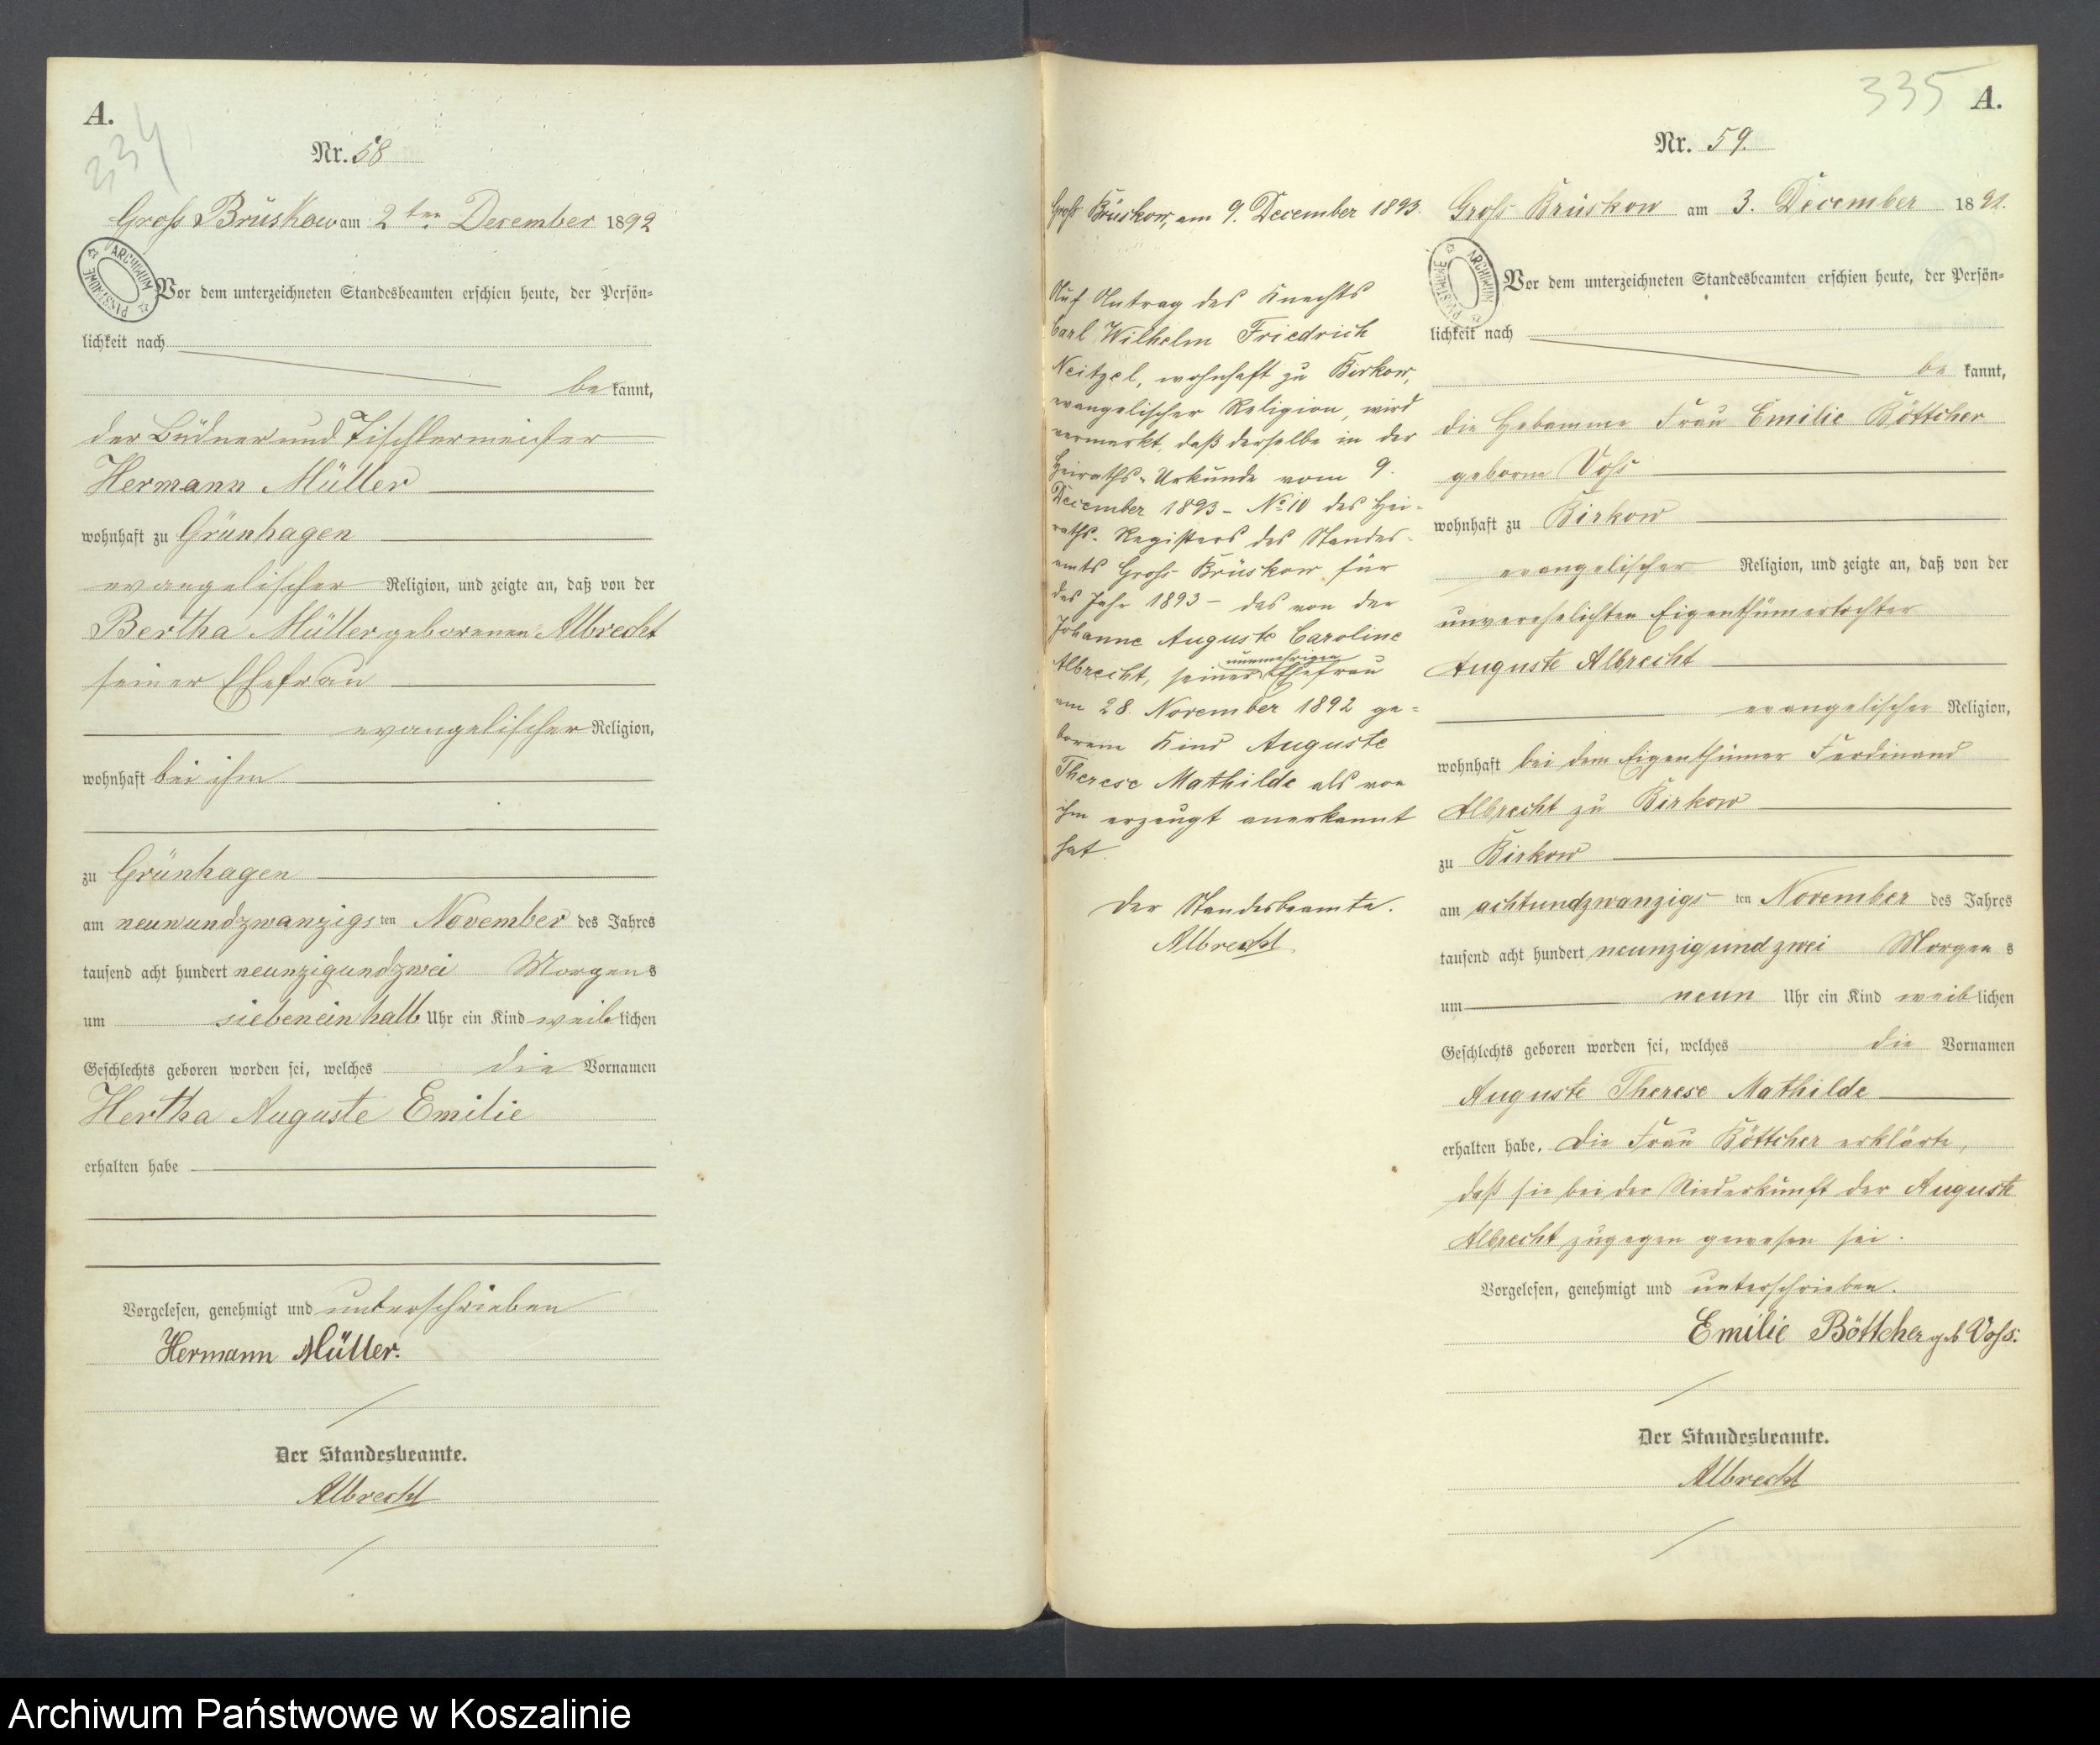 A.
334
Nr. 58
Groß Brüskow am 2ten December 1892
ARCHIWUM PAŃSTWOWE
Vor dem unterzeichneten Standesbeamten erschien heute, der Persön-
lichkeit nach
bekannt,
der Büdner und Tischlermeister
Hermann Müller
wohnhaft zu Grünhagen
evangelischer Religion, und zeigte an, daß von der
Bertha Müller geborenen Albrecht
seiner Ehefrau
evangelischer Religion,
wohnhaft bei ihm
zu Grünhagen
am neunundzwanzigsten November des Jahres
tausend acht hundert neunzigundzwei Morgens
um siebeneinhalb Uhr ein Kind weiblichen
Geschlechts geboren worden sei, welches die Vornamen
Hertha Auguste Emilie
erhalten habe
Vorgelesen, genehmigt und unterschrieben
Hermann Müller.
Der Standesbeamte.
Albrecht
Groß Brüskow, am 9. December 1893.
Auf Antrag des Knechts
Carl Wilhelm Friedrich
Neitzel, wohnhaft zu Birkow,
evangelischer Religion, wird
vermerkt, daß derselbe in der
Heiraths-Urkunde vom 9.
December 1893 - No 10 des Hei-
raths-Registers des Standes-
amts Groß Brüskow für
das Jahr 1893 - das von der
Johanne Auguste Caroline
Albrecht, seiner nunmehrigen Ehefrau
am 28. November 1892 ge-
borene Kind Auguste
Therese Mathilde als von
ihm erzeugt anerkannt
hat.
Der Standesbeamte.
Albrecht
335 A.
Nr. 59.
Groß Brüskow am 3. December 1892.
ARCHIWUM PAŃSTWOWE
Vor dem unterzeichneten Standesbeamten erschien heute, der Persön-
lichkeit nach
bekannt,
die Hebamme Frau Emilie Böttcher
geborne Voß
wohnhaft zu Birkow
evangelischer Religion, und zeigte an, daß von der
unverehelichten Eigenthümertochter
Auguste Albrecht
evangelischer Religion,
wohnhaft bei dem Eigenthümer Ferdinand
Albrecht zu Birkow
zu Birkow
am achtundzwanzigsten November des Jahres
tausend acht hundert neunzigundzwei Morgens
um neun Uhr ein Kind weiblichen
Geschlechts geboren worden sei, welches die Vornamen
Auguste Therese Mathilde
erhalten habe. Die Frau Böttcher erklärte,
daß sie bei der Niederkunft der Auguste
Albrecht zugegen gewesen sei.
Vorgelesen, genehmigt und unterschrieben.
Emilie Böttcher geb Voß.
Der Standesbeamte.
Albrecht
Archiwum Państwowe w Koszalinie